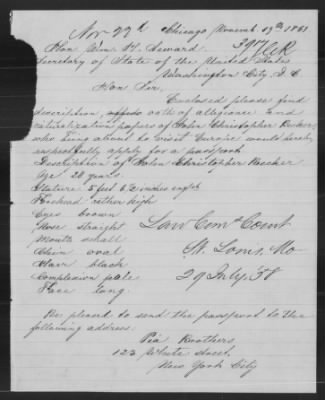 Nov 27th Chicago, Novemb. 19th 1861
Hon Wm. H. Seward.
Secretary of State of the United States
Washington City D. C
Hon Sir,
Enclosed please find
description, oath of allegiance and
naturalization papers of John Christopher
who being about to visit Europe would hereby
respectfully apply for a passport
Description of John Christopher
Age 28 years.
Stature 5 feet 6 inches english
Forehead rather high
Eyes brown
Nose straight
Mouth small
Chin oval
Hair black
Complexion pale
Face long.
Law Com Court
St. Louis, Mo
29 July
Be pleased to send the passport to the
following address:
Brothers
123 White street
New York City